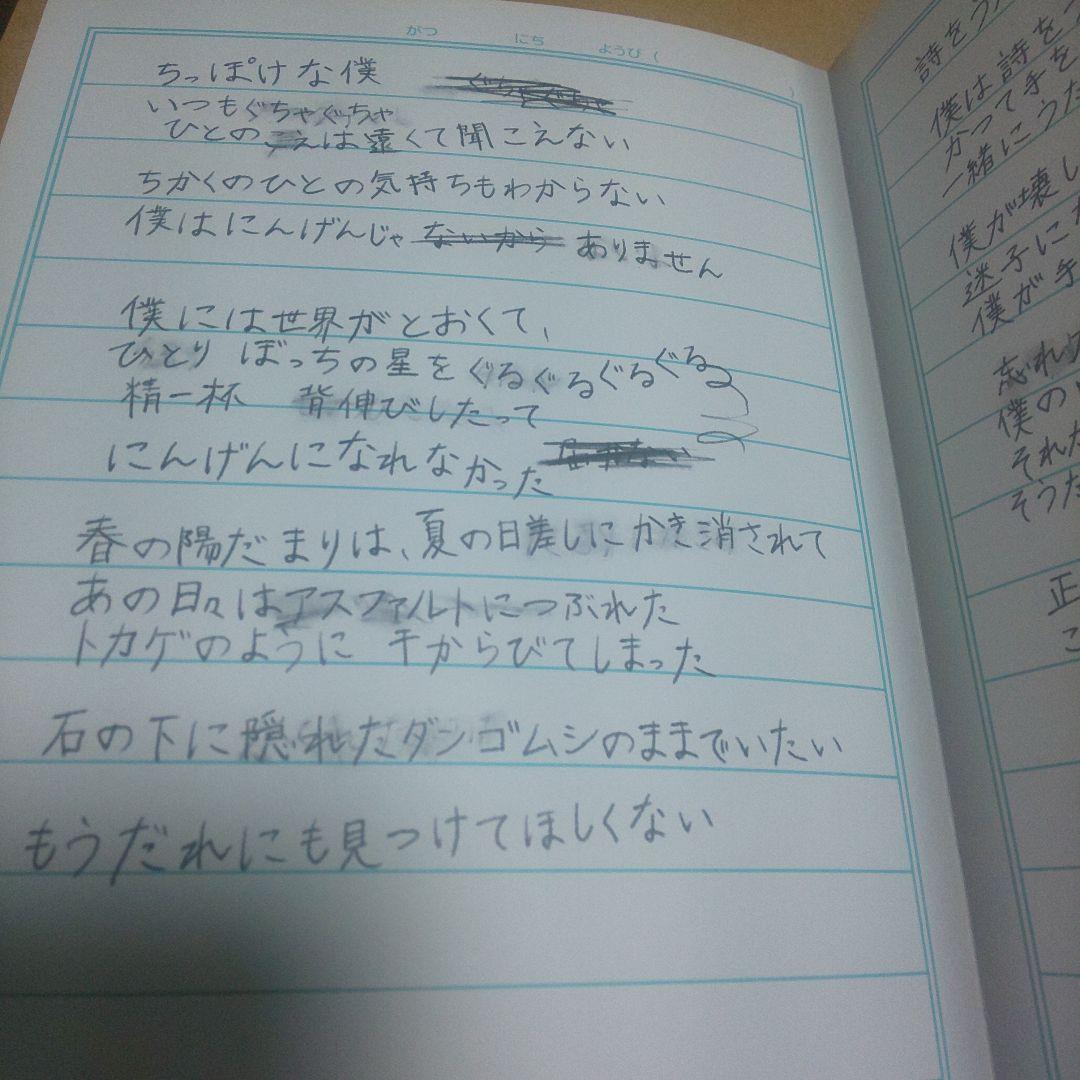 がつ にち ようび ( )
ちっぽけな僕
いつもぐちゃぐっちゃ
ひとのこえは遠くて聞こえない
ちかくのひとの気持ちもわからない
僕はにんげんじゃ ないから ありません
僕には世界がとおくて、
ひとりぼっちの星をぐるぐるぐるぐる
精一杯 背伸びしたって
にんげんになれなかった
春の陽だまりは、夏の日差しにかき消されて
あの日々はアスファルトにつぶれた
トカゲのように 干からびてしまった
石の下に隠れたダンゴムシのままでいたい
もうだれにも見つけてほしくない
詩をう
僕は詩を
かつて手を
一緒にうた
僕が壊し
迷子に
僕が手
忘れ
僕の
それた
そうた
正
こ